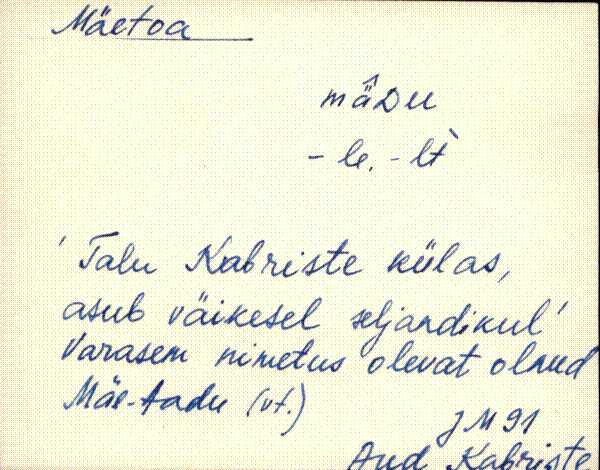 Mäetoa
mä̂Du
- le. - lt̀
' Talu Kabriste külas,
asub väikesel seljandikul'
Varasem nimetus olevat olnud
Mäe-Aadu (vt.)
JM 91
Aud Kabriste